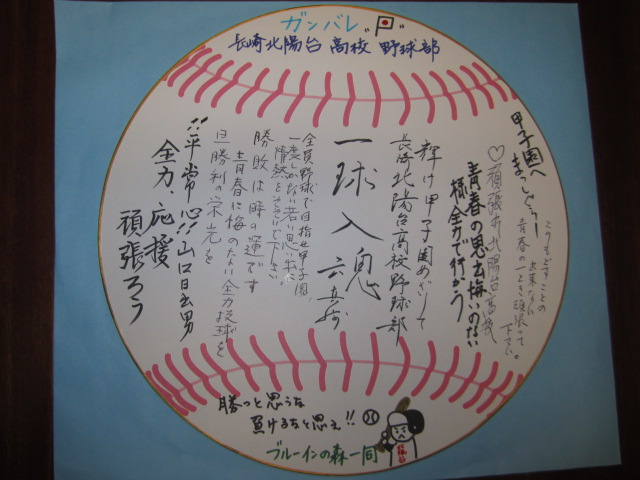 ガンバレ
長崎北陽台高校 野球部
甲子園へ
まっしぐらー
二度もどすことの
出来ない
青春の一ときを頑張って
下さい。
♡頑張れ北陽台高校
青春の思出悔いのない
様全力で行かう
輝け甲子園めざして
長崎北陽台高校野球部
一球入魂
全員野球で目指せ甲子園
一度しかない若い思い出に
情熱をそそいで下さい
勝敗は時の運です
青春に悔のない全力投球を
旦勝利の栄光を
!!平常心!!山口日出男
全力、応援
頑張ろう
勝つと思うな
負けると思え!!
ブルーインの森一同
陽台